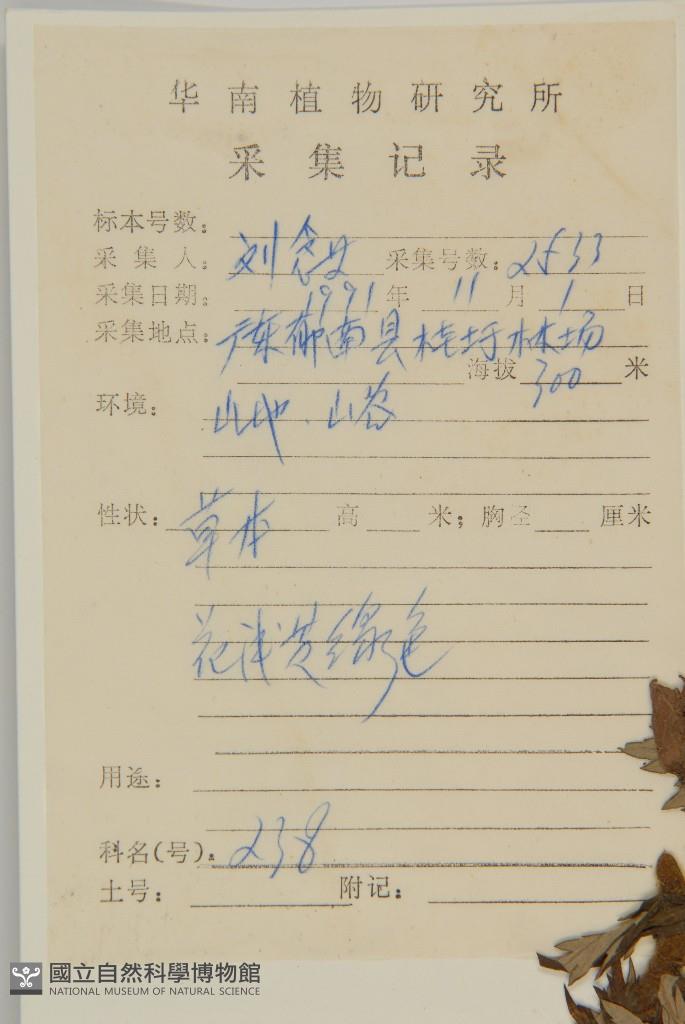 华南植物研究所
采集记录
标本号数：
采集人：刘念 采集号数：2533
采集日期：1991年11月1日
采集地点：广东郁南县桂圩林场
海拔300米
环境：山地．山谷
性状：草本 高 米；胸径 厘米
花浅黄绿色
用途：
科名(号)：238
土号： 附记：
國立自然科學博物館
NATIONAL MUSEUM OF NATURAL SCIENCE